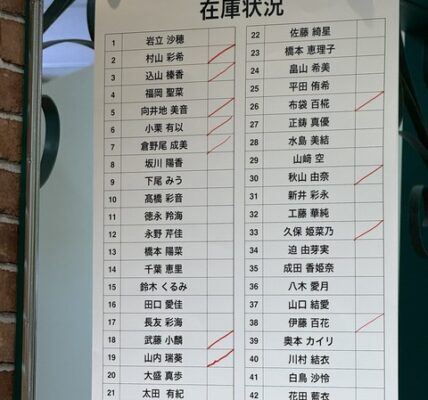 在庫状況
1 岩立 沙穂
2 村山 彩希
3 込山 榛香
4 福岡 聖菜
5 向井地 美音
6 小栗 有以
7 倉野尾 成美
8 坂川 陽香
9 下尾 みう
10 髙橋 彩音
11 徳永 羚海
12 永野 芹佳
13 橋本 陽菜
14 千葉 恵里
15 鈴木 くるみ
16 田口 愛佳
17 長友 彩海
18 武藤 小麟
19 山内 瑞葵
20 大盛 真歩
21 太田 有紀
22 佐藤 綺星
23 橋本 恵理子
24 畠山 希美
25 平田 侑希
26 布袋 百椛
27 正鋳 真優
28 水島 美結
29 山﨑 空
30 秋山 由奈
31 新井 彩永
32 工藤 華純
33 久保 姫菜乃
34 迫 由芽実
35 成田 香姫奈
36 八木 愛月
37 山口 結愛
38 伊藤 百花
39 奥本 カイリ
40 川村 結衣
41 白鳥 沙怜
42 花田 藍衣